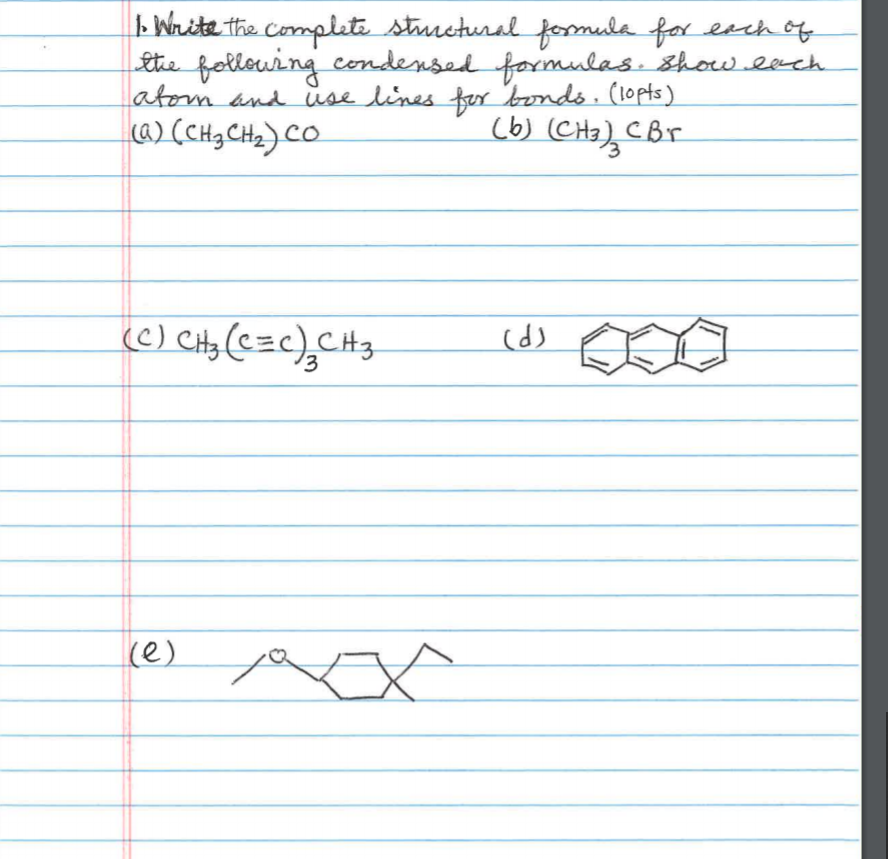 1. Write the complete structural formula for each of
the following condensed formulas. Show each
atom and use lines for bonds. (10pts)
(a) (CH₃CH₂) CO (b) (CH₃)₃ CBr
(c) CH₃(C≡C)₃CH₃ (d)
(e)
O